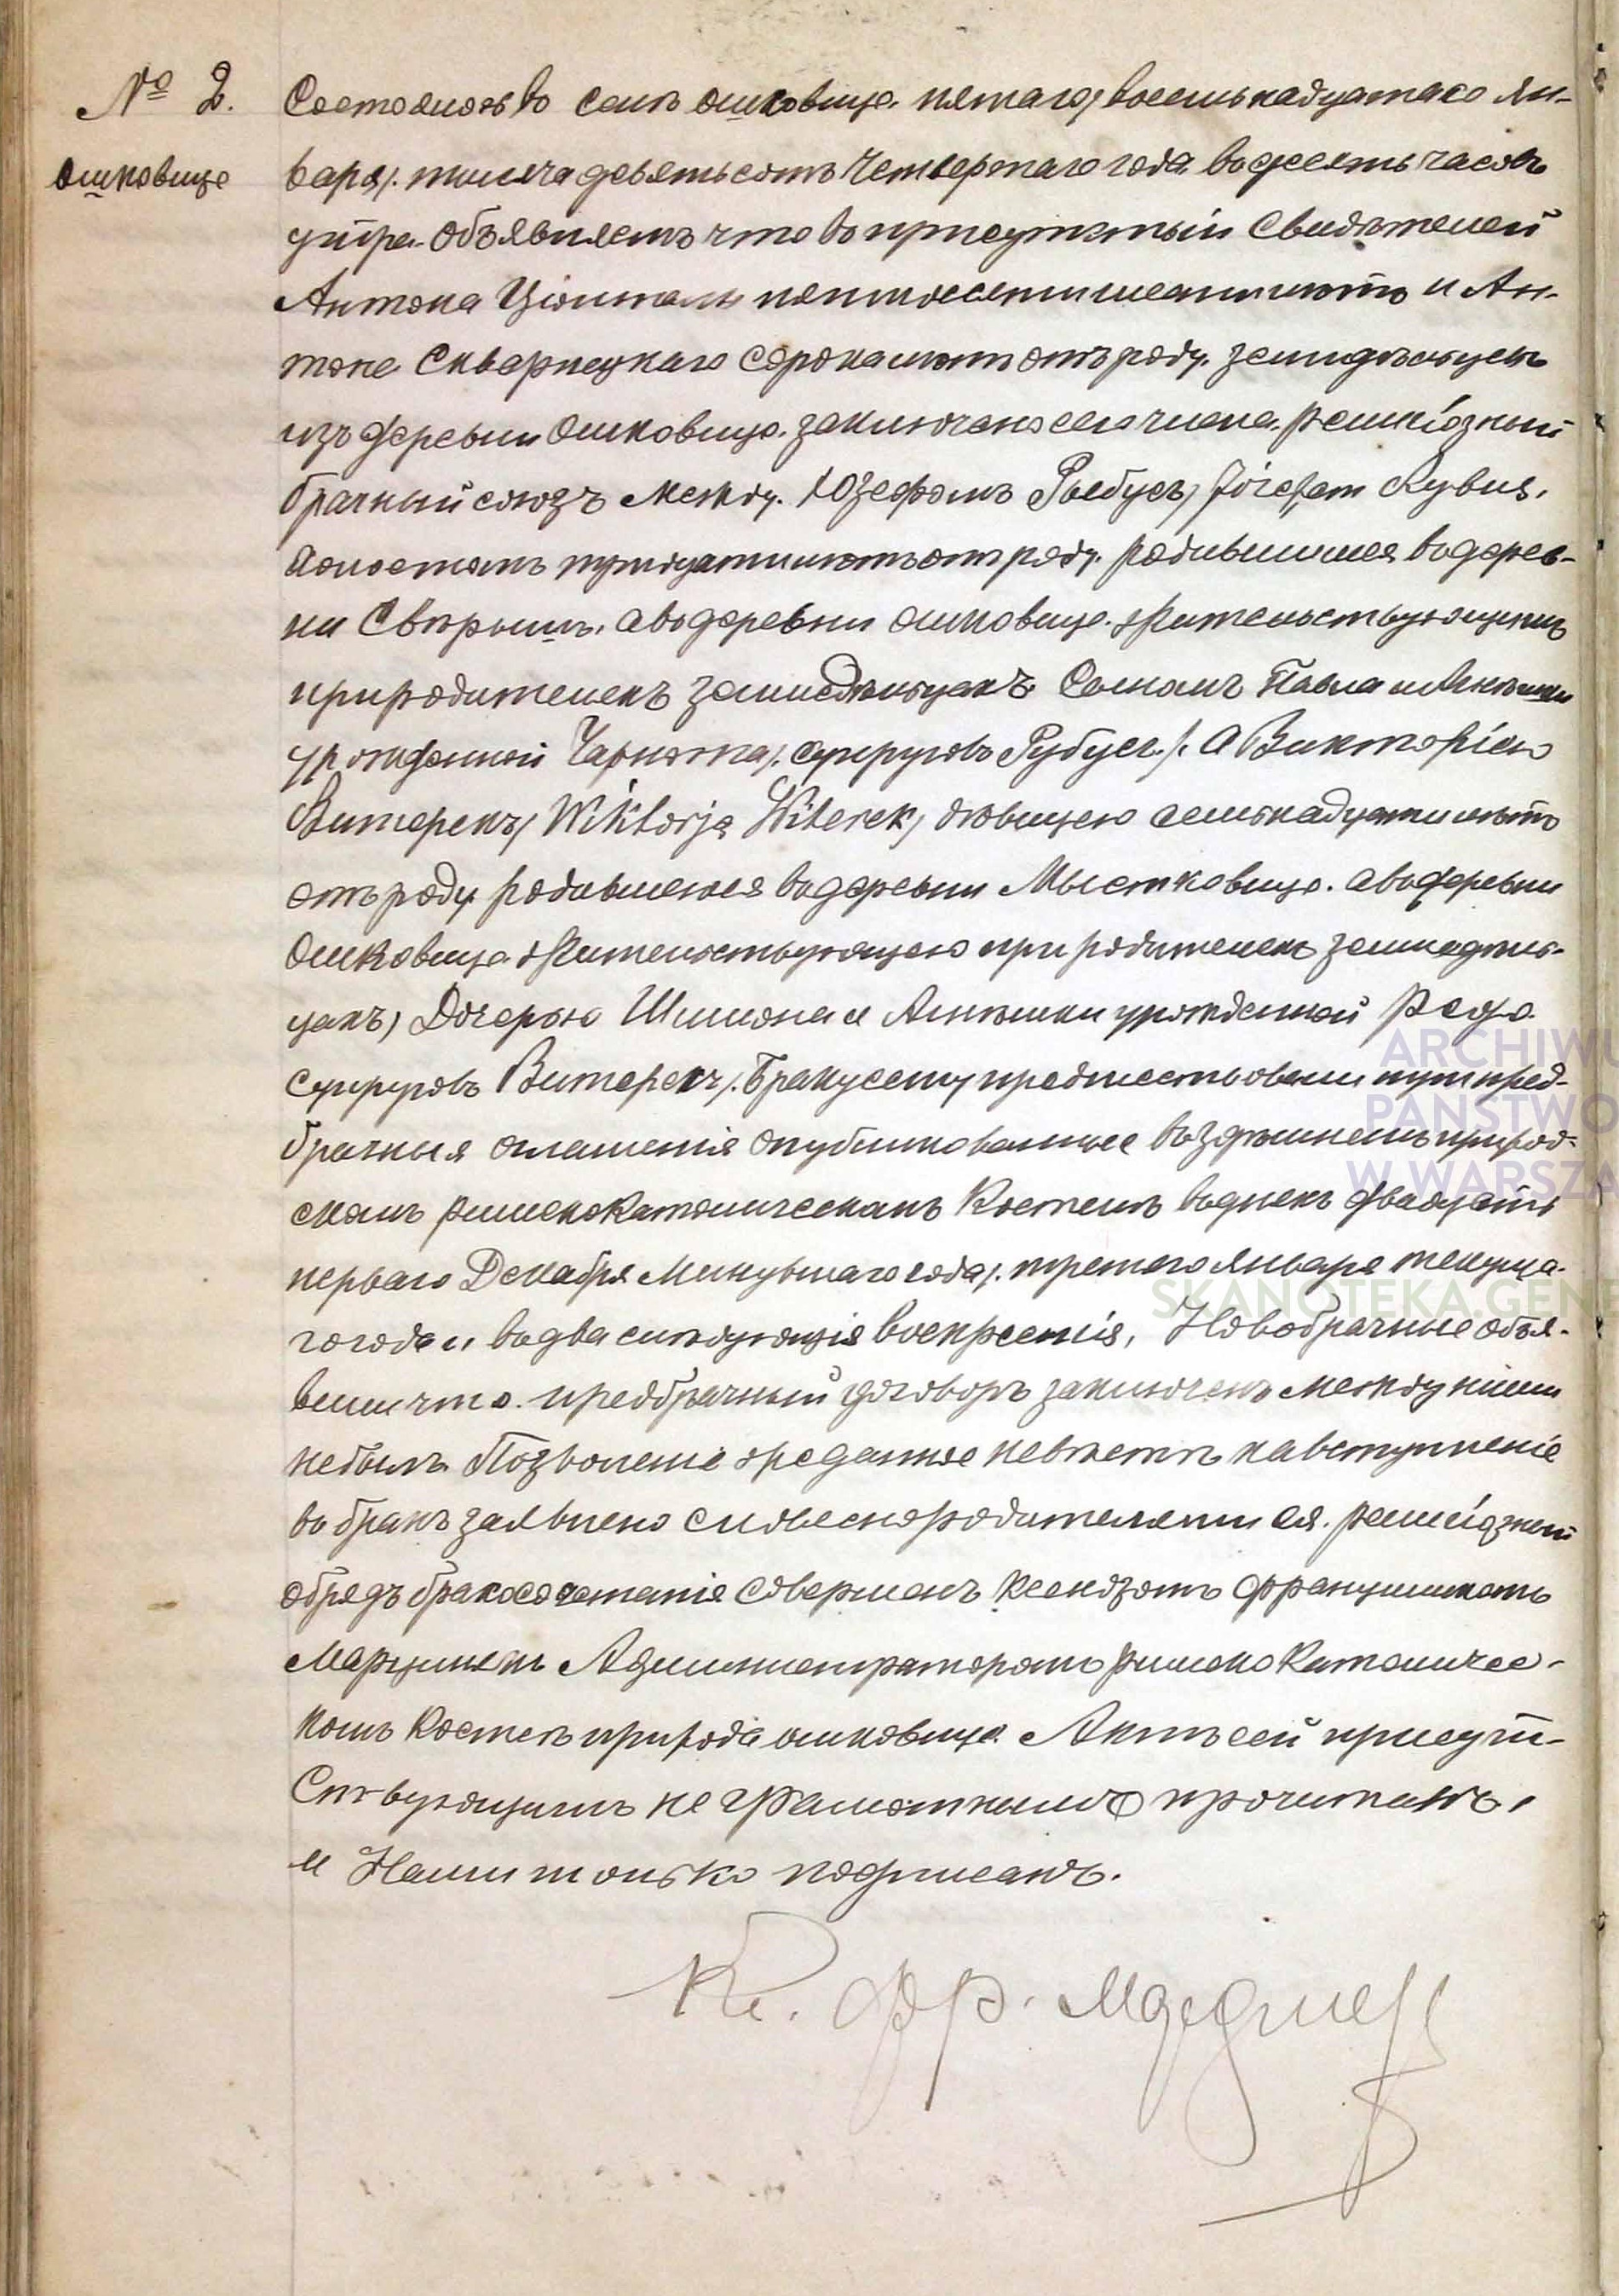 № 2.
Олтковице
Состоялось въ селѣ Олтковице пятаго/восемьнадцатаго Ян-
варя/. тысяча девятьсотъ Четвертаго года въ десять часовъ
утра. Объявляемъ что въ присутствіи Свидѣтелей
Антона пятидесятишестилѣтъ и Ан-
тона Скварнецкаго сорокалѣтъ отъ роду. земледѣльцевъ
изъ деревни заключенъ сего числа. религіозный
брачный союзъ Между. Юзефомъ Рыбусъ/ Józefem Rybus.
холостымъ тридцатилѣтъ отъ роду. родившимся въ дерев-
ни а въ деревни жительствующимъ
при родителяхъ земледѣльцахъ. Сыномъ Павла и Агнѣшки
урожденной Чарнота/. супруговъ Рубусъ./. А Викторіею
Витерекъ/ Wiktorja Witerek/ дѣвицею семьнадцатилѣтъ
отъ роду родившеюся въ деревни Мыстковице. а въ деревни
жительствующею при родителяхъ земледѣль-
цахъ/ Дочерью Шимона и Агнѣшки урожденной
супруговъ Витерекъ/. Браку сему предшествовали три пред-
брачныя оглашенія опубликованныe въ здѣшнемъ приход-
скомъ римскокатолическомъ Костелѣ въ дняхъ двадцать
перваго Декабря Минувшаго года/. третяго января текуща-
го года и въ два слѣдующія воскресенія, Новобрачные объя-
вили что. предбрачный договоръ заключенъ между ними
небылъ. Позволеніе невѣстѣ на вступленіе
въ бракъ заявлено словесно родителями ея. религіозный
обрядъ бракосочетанія совершенъ Ксендзомъ Францишкомъ
Администраторомъ римско Католичес-
комъ Костелѣ прихода Актъ сей присут-
Ствующимъ неграмотнымъ прочитанъ,
и Нами только подписанъ.
Кс. Фр.
ARCHIWU
PAŃSTWO
W WARSZA
SKANOTEKA.GENE